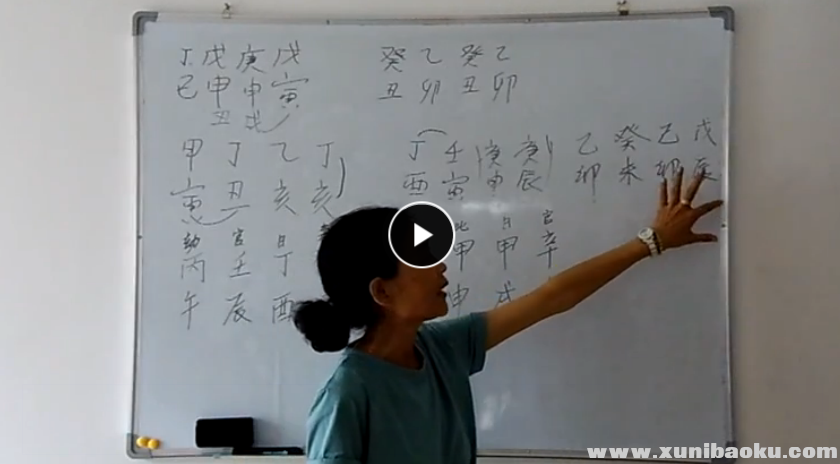 丁戊庚戊
癸乙癸乙
巳申申寅
丑卯丑卯
丑戌
甲丁乙丁
丁壬庚庚
乙癸乙戊
寅丑亥亥
酉寅申辰
卯未卯辰
劫官日
比日官
丙壬丁
甲甲辛
午辰酉
申戌
www.xunibaoku.com